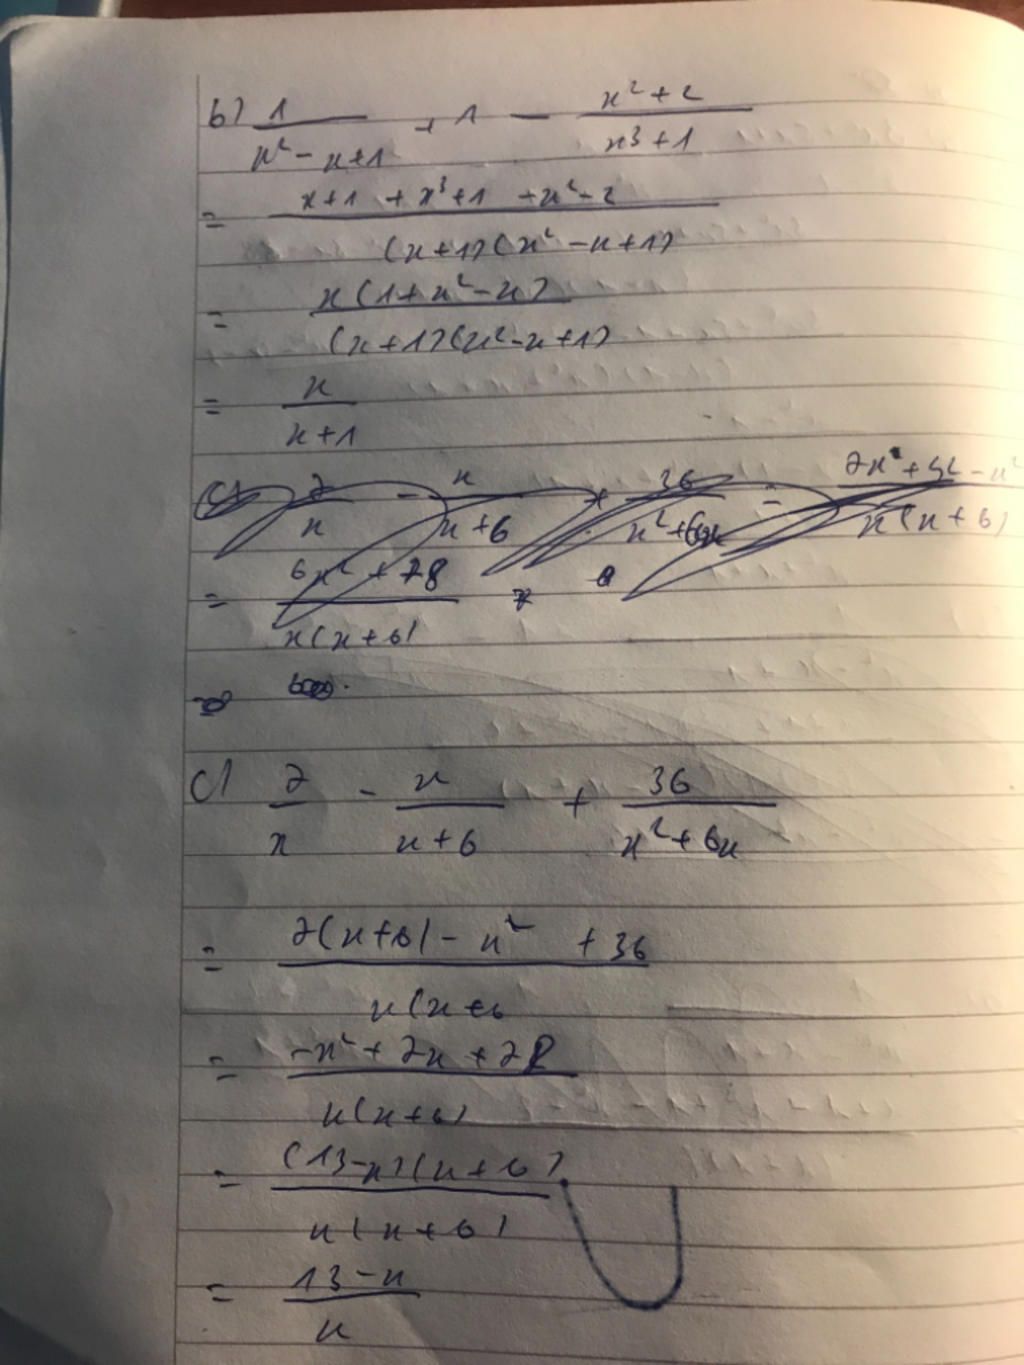 b) 1/(x² - x + 1) + 1 - (x² + 2)/(x³ + 1)
= (x+1 + x³+1 - x² - 2)/((x+1)(x² - x + 1))
= x(1 + x² - x)/((x+1)(x² - x + 1))
= x/(x+1)
c) 2/x - x/(x+6) + 36/(x² + 6x) =
= (6x² + 78)/(x(x+6))
c) 2/x - x/(x+6) + 36/(x² + 6x)
= (2(x+6) - x² + 36)/(x(x+6
= (-x² + 7x + 78)/(x(x+6))
= (13-x)(x+6)/(x(x+6))
= (13-x)/x